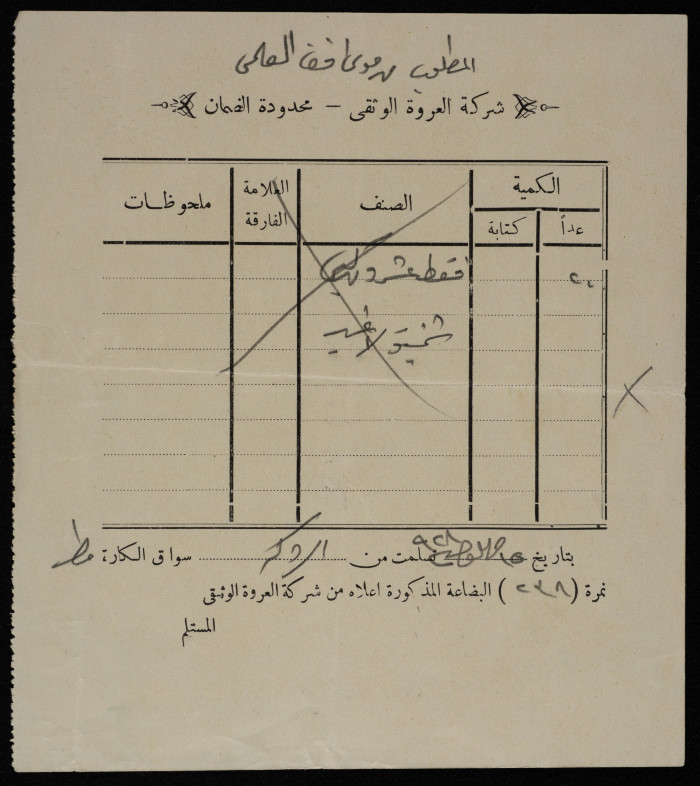 المطلوب من موسى العلمي
شركة العروة الوثقى — محدودة الضمان
الكمية
عداً
كتابة
الصنف
العلامة الفارقة
ملحوظات
٢٠
فقط عشرون
لا غير
بتاريخ ٩٢٨ استلمت من سواق الكارة
نمرة (٢٣٨) البضاعة المذكورة اعلاه من شركة العروة الوثقى
المستلم